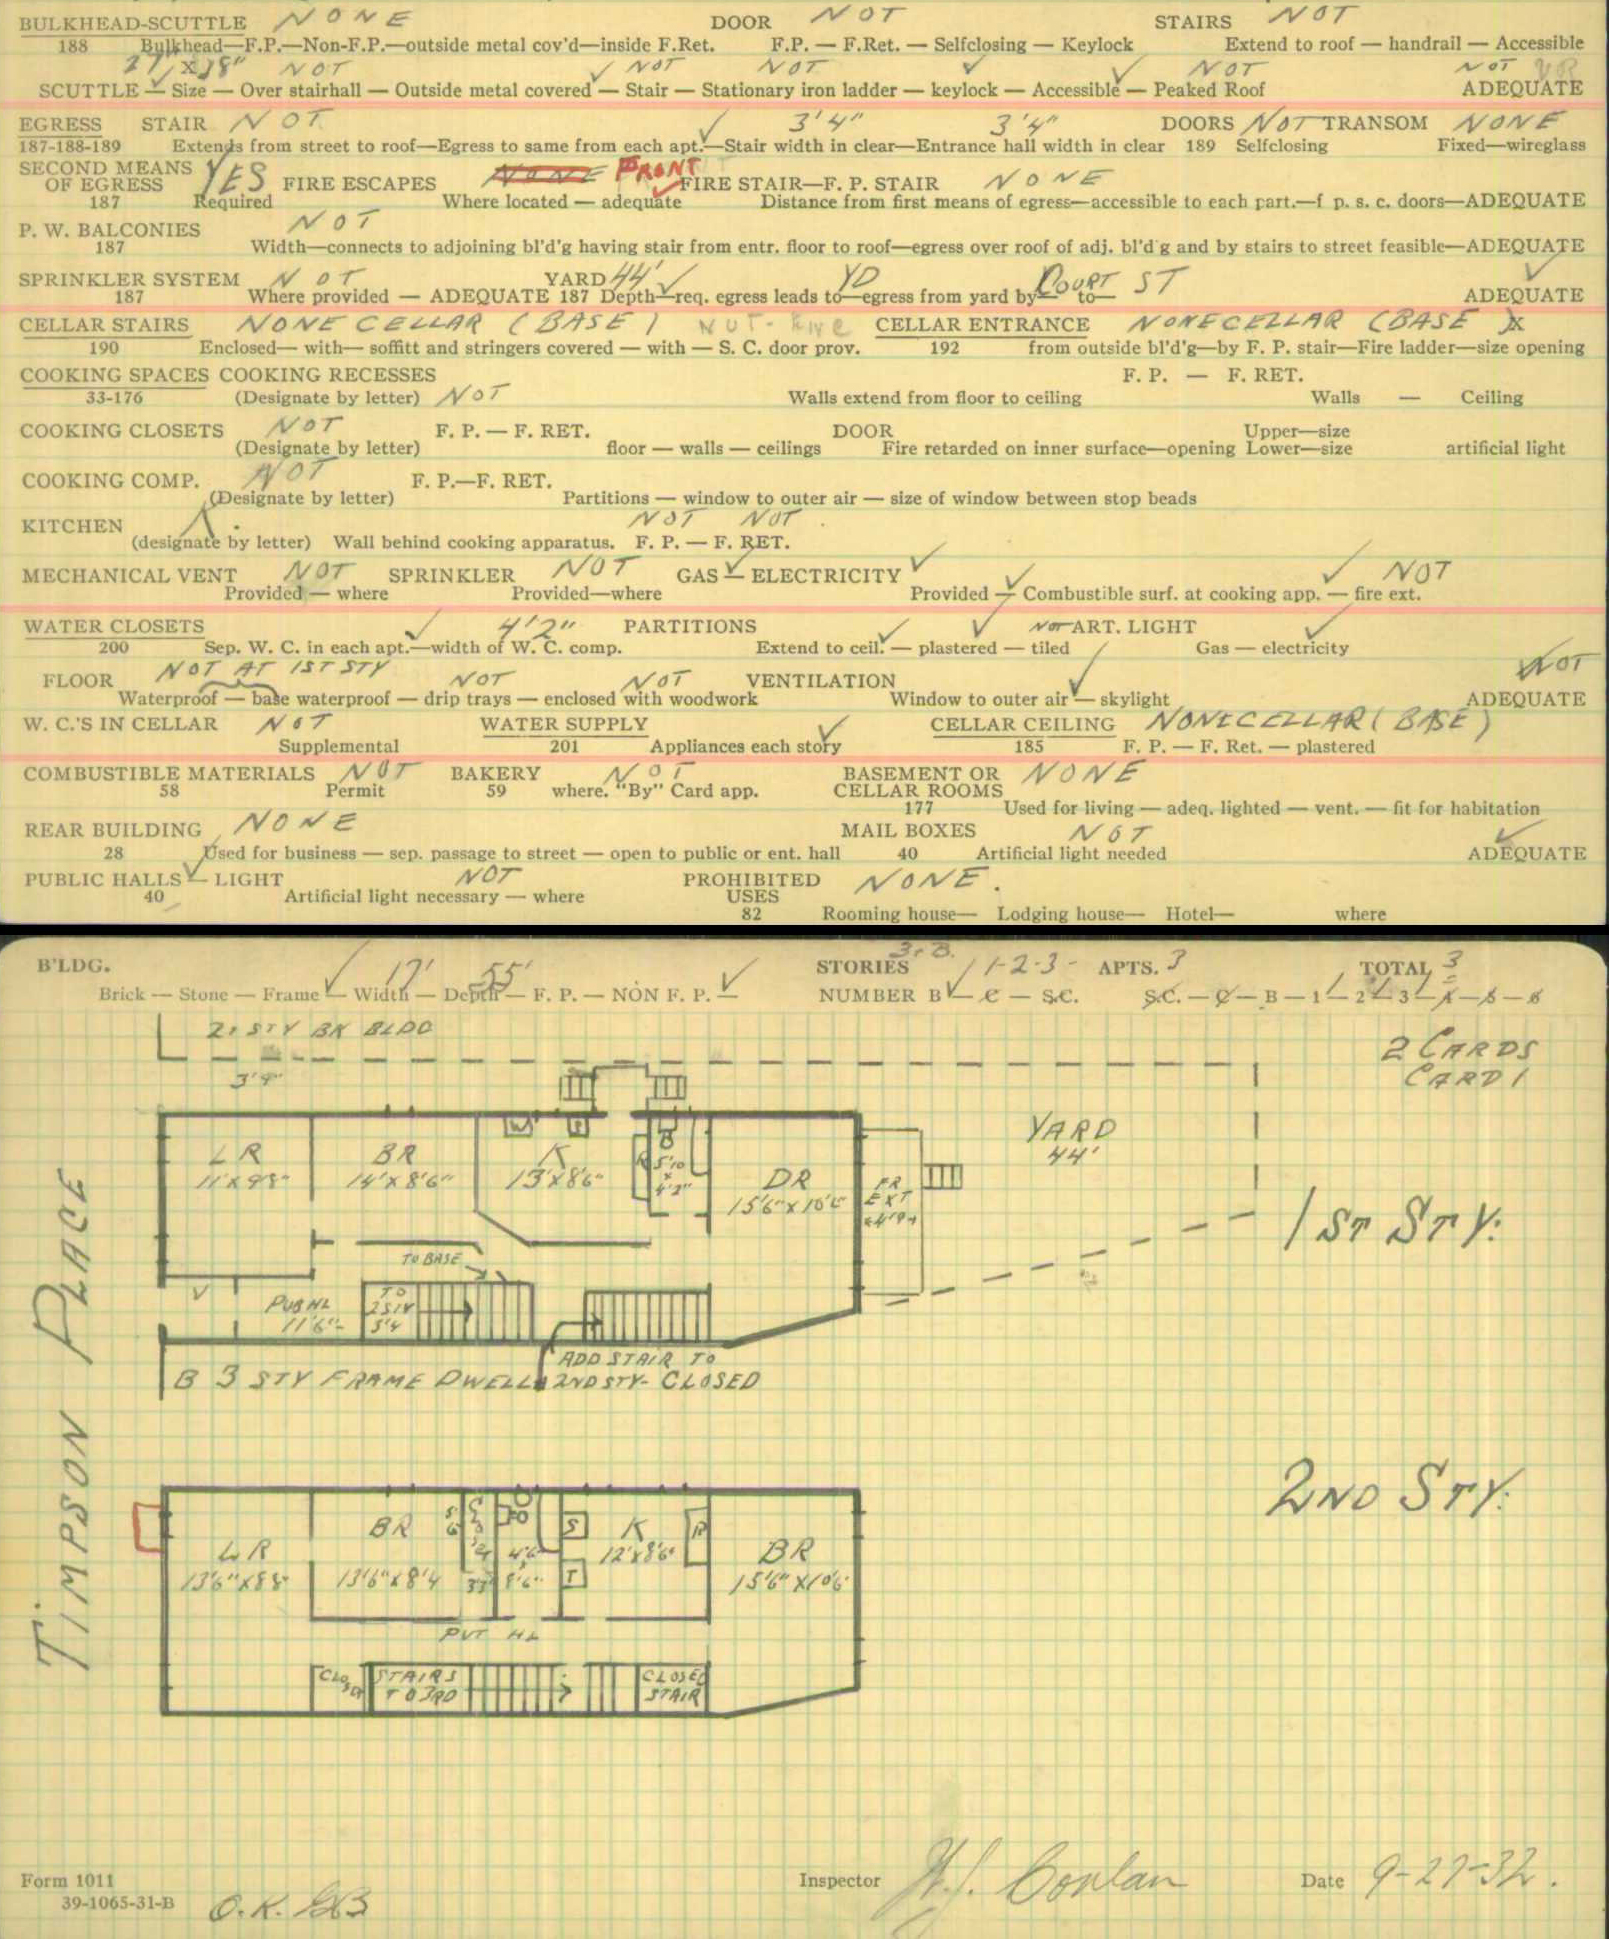 BULKHEAD-SCUTTLE NONE DOOR NOT STAIRS NOT
188 Bulkhead—F.P.—Non-F.P.—outside metal cov'd—inside F.Ret. F.P. — F.Ret. — Selfclosing — Keylock Extend to roof — handrail — Accessible
NOT NOT NOT NOT NOT
SCUTTLE — Size — Over stairhall — Outside metal covered — Stair — Stationary iron ladder — keylock — Accessible — Peaked Roof ADEQUATE
EGRESS STAIR NOT 3'4" 3'4" DOORS NOT TRANSOM NONE
187-188-189 Extends from street to roof—Egress to same from each apt.—Stair width in clear—Entrance hall width in clear 189 Selfclosing Fixed—wireglass
SECOND MEANS
OF EGRESS YES FIRE ESCAPES NONE FRONT FIRE STAIR—F. P. STAIR NONE
187 Required Where located — adequate Distance from first means of egress—accessible to each part.—f p. s. c. doors—ADEQUATE
P. W. BALCONIES NOT
187 Width—connects to adjoining bl'd'g having stair from entr. floor to roof—egress over roof of adj. bl'd'g and by stairs to street feasible—ADEQUATE
SPRINKLER SYSTEM NOT YARD 44' YD COURT ST
187 Where provided — ADEQUATE 187 Depth—req. egress leads to—egress from yard by— to— ADEQUATE
CELLAR STAIRS NONE CELLAR (BASE) CELLAR ENTRANCE NONE CELLAR (BASE)
190 Enclosed— with— soffitt and stringers covered — with — S. C. door prov. 192 from outside bl'd'g—by F. P. stair—Fire ladder—size opening
COOKING SPACES COOKING RECESSES F. P. — F. RET.
33-176 (Designate by letter) NOT Walls extend from floor to ceiling Walls — Ceiling
COOKING CLOSETS NOT F. P. — F. RET. DOOR Upper—size
(Designate by letter) floor — walls — ceilings Fire retarded on inner surface—opening Lower—size artificial light
COOKING COMP. NOT F. P.—F. RET.
(Designate by letter) Partitions — window to outer air — size of window between stop beads
KITCHEN NOT NOT
(designate by letter) Wall behind cooking apparatus. F. P. — F. RET.
MECHANICAL VENT NOT SPRINKLER NOT GAS — ELECTRICITY NOT
Provided — where Provided—where Provided — Combustible surf. at cooking app. — fire ext.
WATER CLOSETS 4'2" PARTITIONS NOT ART. LIGHT
200 Sep. W. C. in each apt.—width of W. C. comp. Extend to ceil. — plastered — tiled Gas — electricity
FLOOR NOT AT 1ST STY NOT NOT VENTILATION NOT
Waterproof — base waterproof — drip trays — enclosed with woodwork Window to outer air — skylight ADEQUATE
W. C.'S IN CELLAR NOT WATER SUPPLY CELLAR CEILING NONE CELLAR (BASE)
Supplemental 201 Appliances each story 185 F. P. — F. Ret. — plastered
COMBUSTIBLE MATERIALS NOT BAKERY NOT BASEMENT OR NONE
58 Permit 59 where. "By" Card app. CELLAR ROOMS
177 Used for living — adeq. lighted — vent. — fit for habitation
REAR BUILDING NONE MAIL BOXES NOT
28 Used for business — sep. passage to street — open to public or ent. hall 40 Artificial light needed ADEQUATE
PUBLIC HALLS — LIGHT NOT PROHIBITED NONE.
40 Artificial light necessary — where USES
82 Rooming house— Lodging house— Hotel— where
B'LDG. 17' 55' STORIES 3+B. 1-2-3- APTS. 3 TOTAL 3
Brick — Stone — Frame — Width — Depth — F. P. — NON F. P. — NUMBER B — C — S.C. S.C. — C — B — 1 — 2 — 3 — 4 — 5 — 6
2. STY BK BLDG
2 CARDS
CARD 1
3'9"
YARD
44'
LR
BR
14'X8'6"
K
13'X8'6"
5'10
x
4'2"
DR
15'6"X10'6
FR
EXT
1ST STY.
TO BASE
PUB HL
11'6"
TO
2 STY
3'4
ADD STAIR TO
2ND STY- CLOSED
B 3 STY FRAME DWELL
TIMPSON PLACE
2ND STY.
LR
13'6"X8'8"
BR
13'6"X8'4
S
T
K
12'X8'6"
R
BR
15'6"X10'6
PVT HL
CLOS
STAIRS
TO 3RD
CLOSED
STAIR
Form 1011
39-1065-31-B O.K.
Inspector Conlan Date 9-27-32.